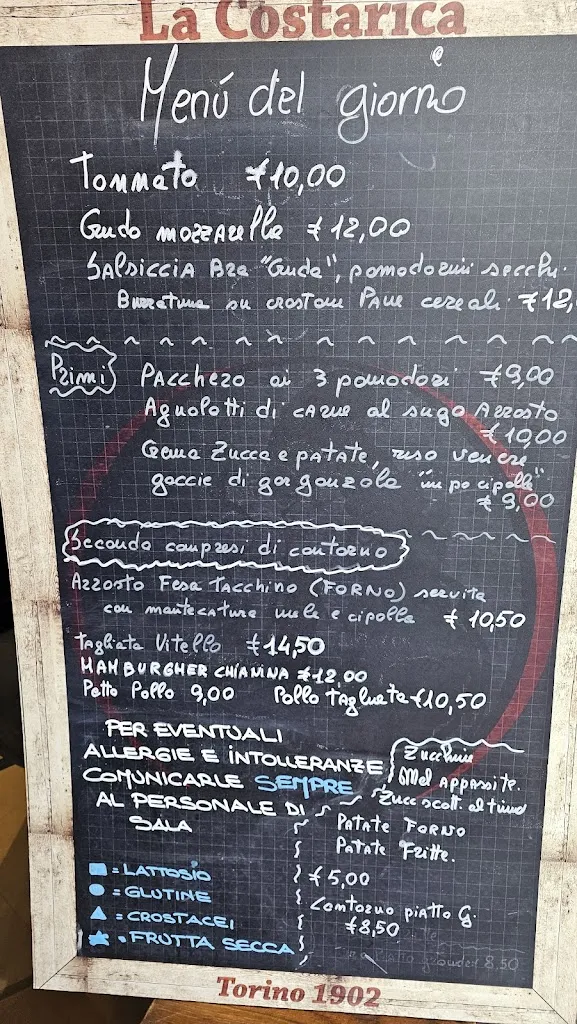 La Costarica
Menú del giorno
Tonnato €10,00
Crudo mozzarella €12,00
Salsiccia Bra "Cruda", pomodorini secchi
Burratina su crostoni Pane cereali €12,
Primi
Pacchero ai 3 pomodori €9,00
Agnolotti di carne al sugo Arrosto
€10,00
Crema Zucca e patate, riso venere
goccie di gorgonzola "un po cipolla"
€9,00
Secondo compresi di contorno
Arrosto Fesa Tacchino (FORNO) servita
con mantecatura mele e cipolla €10,50
Tagliata Vitello €14,50
HAMBURGHER CHIANINA €12,00
Petto Pollo 9,00 Pollo Tagliata €10,50
PER EVENTUALI
ALLERGIE E INTOLLERANZE
COMUNICARLE SEMPRE
AL PERSONALE DI
SALA
Zucchine
Mel appassite.
Zucc scott. al timo
Patate Forno
Patate Fritte.
€5,00
Contorno piatto G.
€8,50
= LATTOSIO
= GLUTINE
= CROSTACEI
= FRUTTA SECCA
8,50
Torino 1902